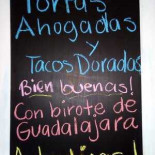 Tortas
Ahogadas
y
Tacos Dorados
Bien buenas!
Con birote de
Guadalajara